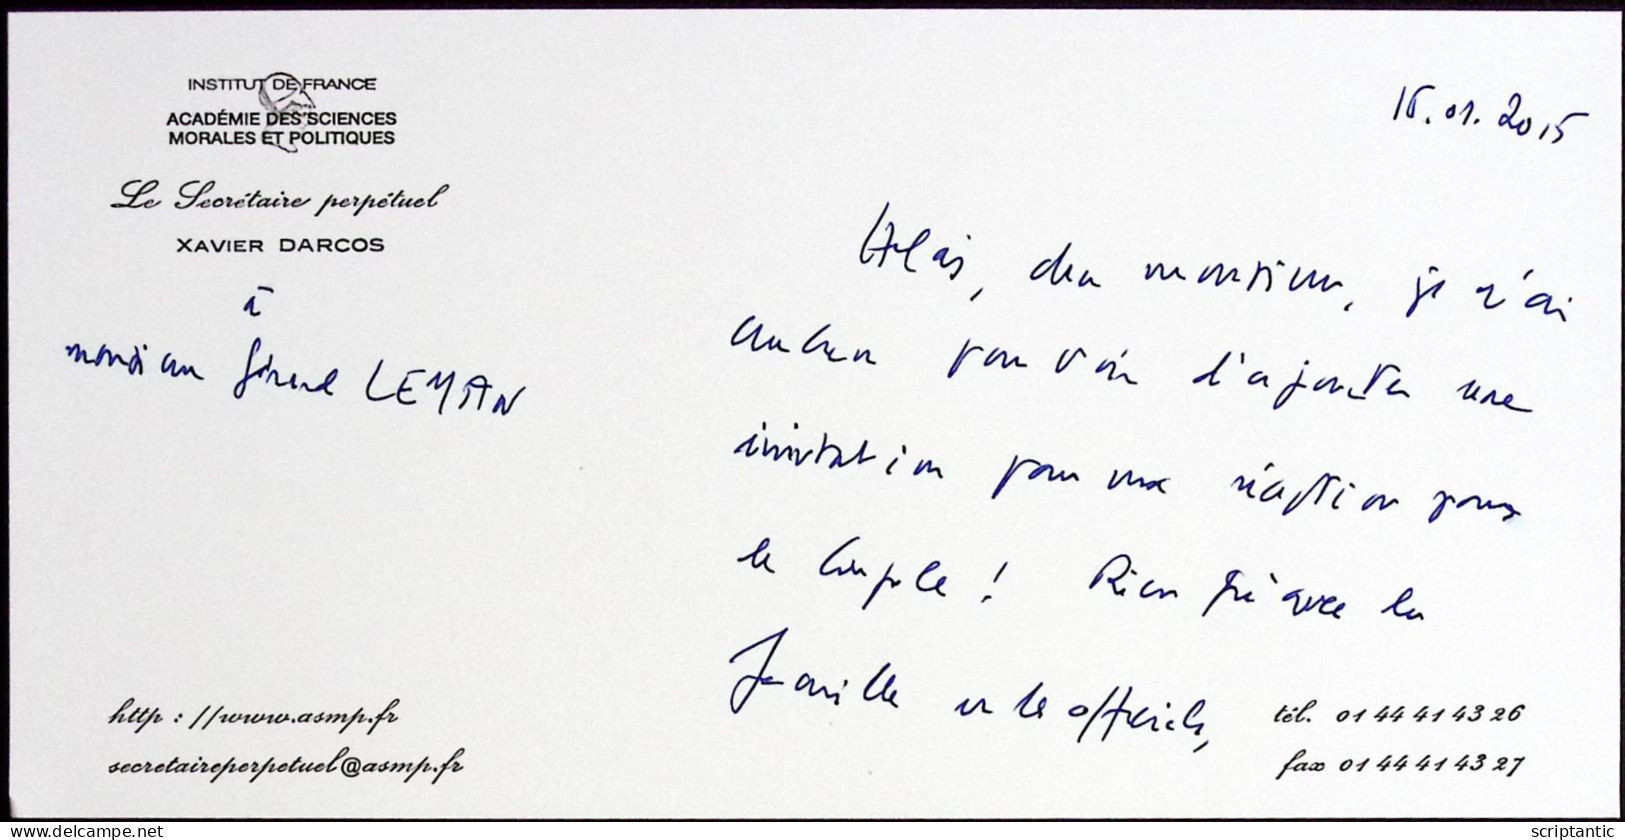 INSTITUT DE FRANCE
ACADÉMIE DES SCIENCES
MORALES ET POLITIQUES
Le Secrétaire perpétuel
XAVIER DARCOS
à
monsieur Gérard LEMAN
http : //www.asmp.fr
secretaireperpetuel@asmp.fr
16.01.2015
Hélas, cher monsieur, je n'ai
aucun pouvoir d'ajouter une
invitation pour une réception pour
le couple ! Rien qu'avec la
famille et les officiels,
tél. 01 44 41 43 26
fax 01 44 41 43 27
delcampe.net
scriptantic